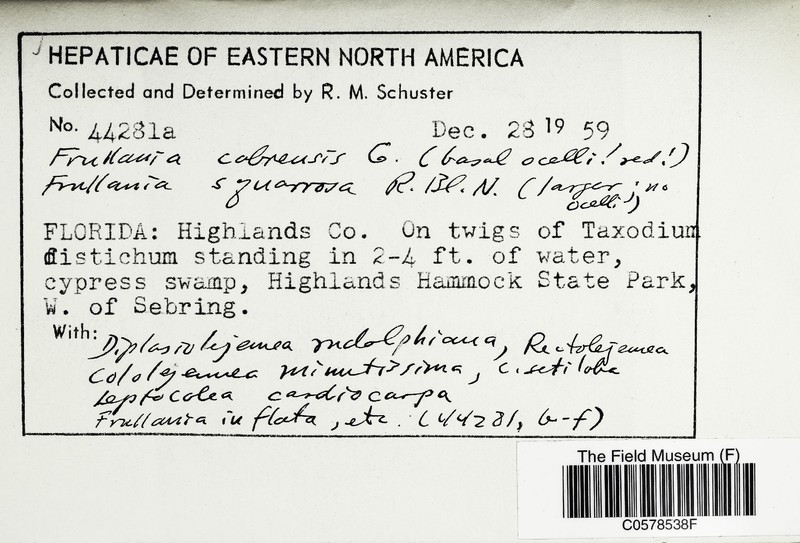 HEPATICAE OF EASTERN NORTH AMERICA
Collected and Determined by R. M. Schuster
No. 44281a Dec. 28 19 59
Frullania cobrensis G. (basal ocelli! red!)
Frullania squarrosa R. Bl. N. (larger; no
ocelli)
FLORIDA: Highlands Co. On twigs of Taxodium
distichum standing in 2-4 ft. of water,
cypress swamp, Highlands Hammock State Park,
W. of Sebring.
With: Diplasiolejeunea rudolphiana, Rectolejeunea
Cololejeunea minutissima, C. setiloba
Leptocolea cardiocarpa
Frullania inflata, etc. (44281, b-f)
The Field Museum (F)
C0578538F